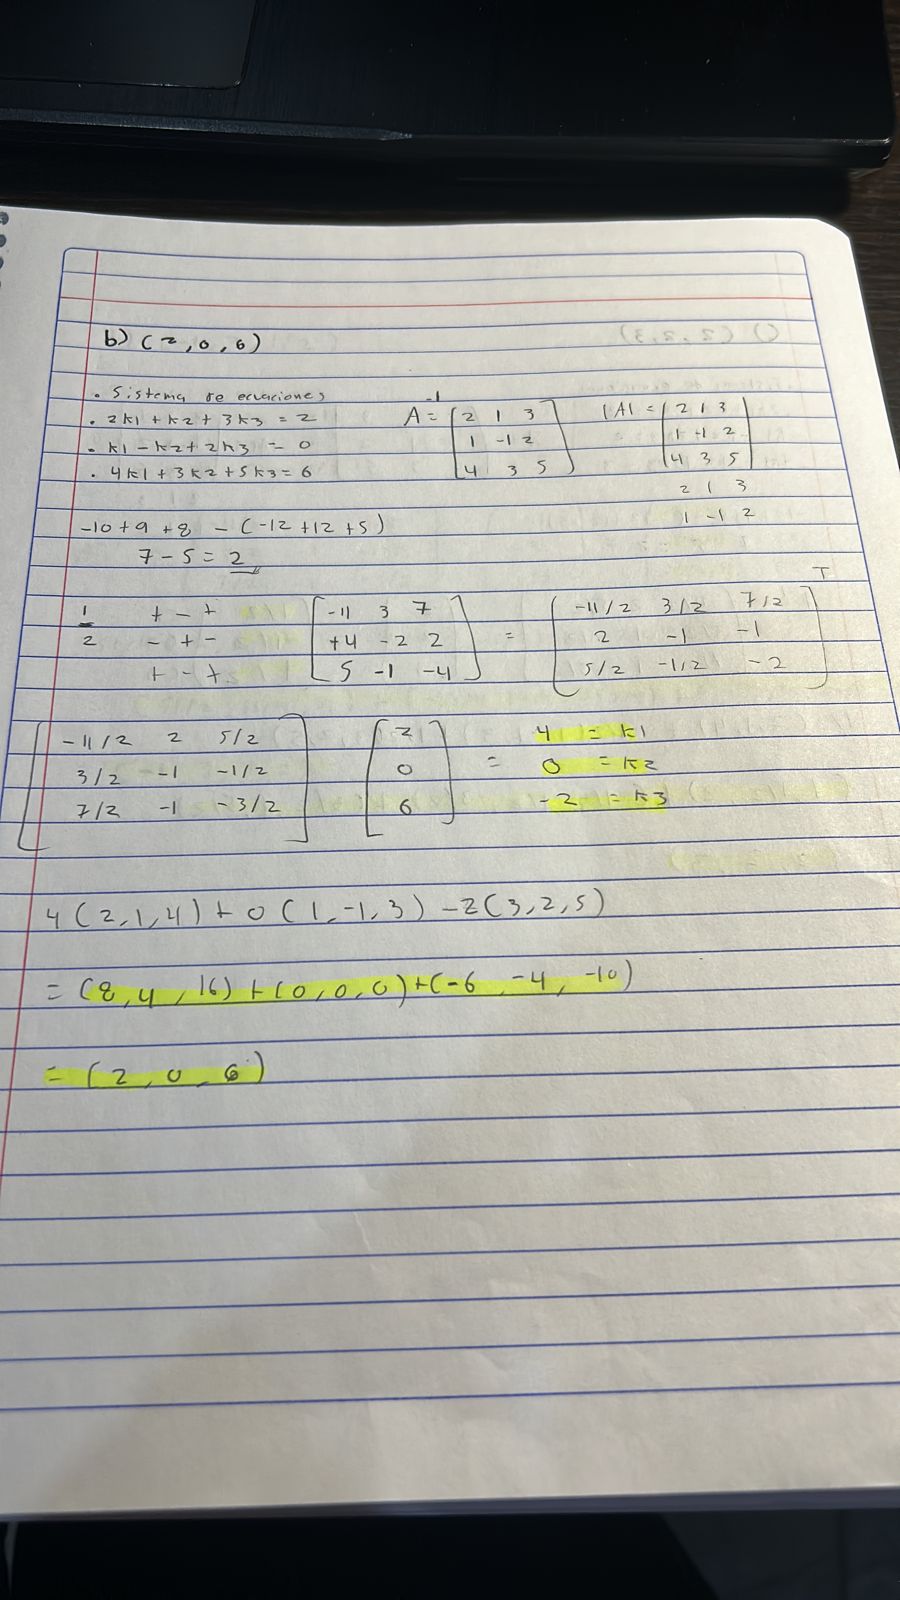 b) (2, 0, 6)
. Sistema de ecuaciones
. 2k1 + k2 + 3k3 = 2
. k1 - k2 + 2k3 = 0
. 4k1 + 3k2 + 5k3 = 6
A⁻¹ = [ 2 1 3
1 -1 2
4 3 5 ]
|A| = | 2 1 3
1 -1 2
4 3 5 |
2 1 3
1 -1 2
-10 + 9 + 8 - (-12 + 12 + 5)
7 - 5 = 2
1/2
+ - +
- + -
+ - +
[ -11 3 7
+4 -2 2
5 -1 -4 ]
= [ -11/2 3/2 7/2
2 -1 -1
5/2 -1/2 -2 ] T
[ -11/2 2 5/2
3/2 -1 -1/2
7/2 -1 -3/2 ]
[ 2
0
6 ]
= 4 = k1
0 = k2
-2 = k3
4(2,1,4) + 0(1,-1,3) -2(3,2,5)
= (8, 4, 16) + (0, 0, 0) + (-6, -4, -10)
= (2, 0, 6)